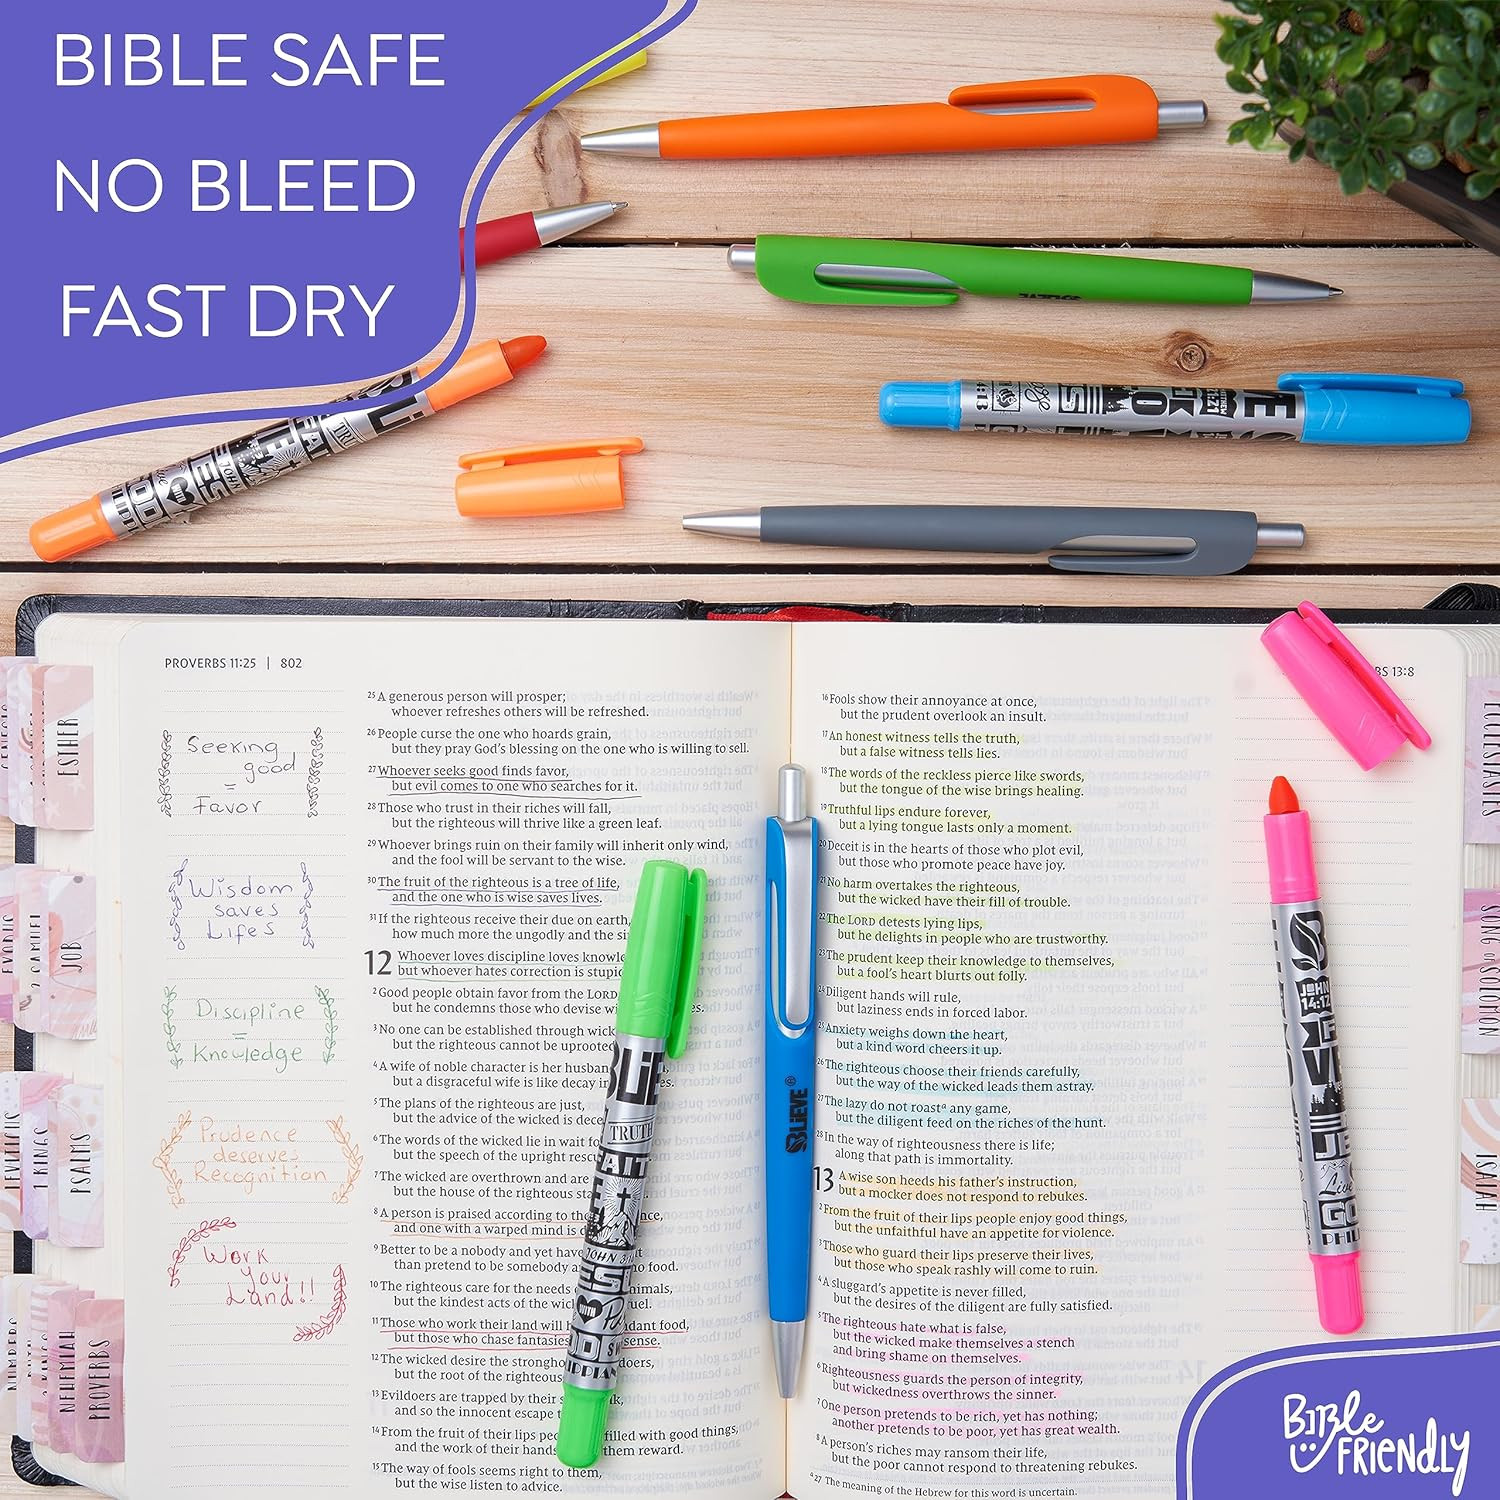 BIBLE SAFE
NO BLEED
FAST DRY
BLIEVE
MATTHEW
21:21
PROVERBS 11:25 | 802
²⁵A generous person will prosper;
whoever refreshes others will be refreshed.
²⁶People curse the one who hoards grain,
but they pray God's blessing on the one who is willing to sell.
²⁷Whoever seeks good finds favor,
but evil comes to one who searches for it.
²⁸Those who trust in their riches will fall,
but the righteous will thrive like a green leaf.
²⁹Whoever brings ruin on their family will inherit only wind,
and the fool will be servant to the wise.
³⁰The fruit of the righteous is a tree of life,
and the one who is wise saves lives.
³¹If the righteous receive their due on earth,
how much more the ungodly and the
12 Whoever loves discipline loves
but whoever hates correction is
²Good people obtain favor from the LORD
but he condemns those who devise
³No one can be established through
but the righteous cannot be uprooted
⁴A wife of noble character is her
but a disgraceful wife is like decay in
⁵The plans of the righteous are just,
but the advice of the wicked is
⁶The words of the wicked lie in wait
but the speech of the upright
⁷The wicked are overthrown and are
but the house of the righteous
⁸A person is praised according to
and one with a warped mind is
⁹Better to be a nobody and yet
than pretend to be somebody no food.
¹⁰The righteous care for the needs
but the kindest acts of the
¹¹Those who work their land will food,
but those who chase fantasies sense.
¹²The wicked desire the
but the root of the righteous
¹³Evildoers are trapped by their
and so the innocent escape
¹⁴From the fruit of their lips filled with good things,
and the work of their hands them reward.
¹⁵The way of fools seems right to them,
but the wise listen to advice.
Seeking
good
=
Favor
Wisdom
saves
Lifes
Discipline
=
Knowledge
Prudence
deserves
Recognition
Work
your
Land!!
ESTHER
JOB
2 SAMUEL
LEVITICUS
1 KINGS
PSALMS
NUMBERS
NEHEMIAH
PROVERBS
TRUTH
JOHN
BLIEVE®
13:8
¹⁶Fools show their annoyance at once,
but the prudent overlook an insult.
¹⁷An honest witness tells the truth,
but a false witness tells lies.
¹⁸The words of the reckless pierce like swords,
but the tongue of the wise brings healing.
¹⁹Truthful lips endure forever,
but a lying tongue lasts only a moment.
²⁰Deceit is in the hearts of those who plot evil,
but those who promote peace have joy.
²¹No harm overtakes the righteous,
but the wicked have their fill of trouble.
²²The LORD detests lying lips,
but he delights in people who are trustworthy.
²³The prudent keep their knowledge to themselves,
but a fool's heart blurts out folly.
²⁴Diligent hands will rule,
but laziness ends in forced labor.
²⁵Anxiety weighs down the heart,
but a kind word cheers it up.
²⁶The righteous choose their friends carefully,
but the way of the wicked leads them astray.
²⁷The lazy do not roastᵃ any game,
but the diligent feed on the riches of the hunt.
²⁸In the way of righteousness there is life;
along that path is immortality.
13 A wise son heeds his father's instruction,
but a mocker does not respond to rebukes.
²From the fruit of their lips people enjoy good things,
but the unfaithful have an appetite for violence.
³Those who guard their lips preserve their lives,
but those who speak rashly will come to ruin.
⁴A sluggard's appetite is never filled,
but the desires of the diligent are fully satisfied.
⁵The righteous hate what is false,
but the wicked make themselves a stench
and bring shame on themselves.
⁶Righteousness guards the person of integrity,
but wickedness overthrows the sinner.
⁷One person pretends to be rich, yet has nothing;
another pretends to be poor, yet has great wealth.
⁸A person's riches may ransom their life,
but the poor cannot respond to threatening rebukes.
ᵃ 27 The meaning of the Hebrew for this word is uncertain.
JOHN
14:12
ECCLESIASTES
SONG OF SOLOMON
ISAIAH
BIBLE
FRIENDLY